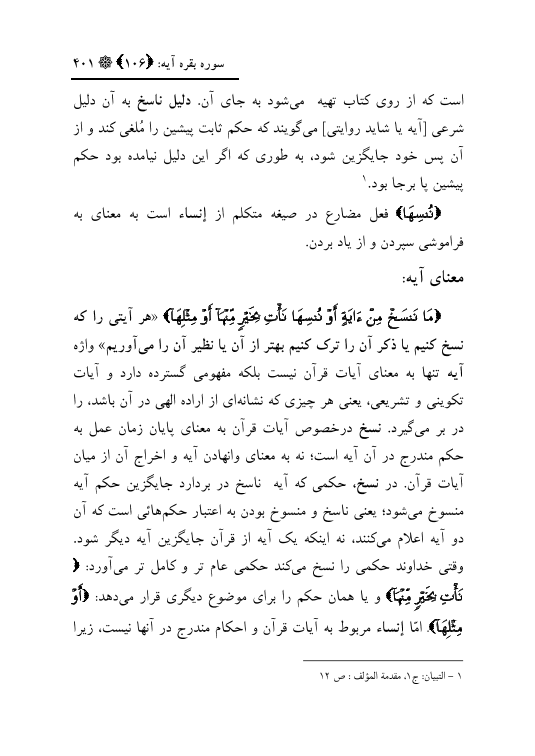 سوره بقره آیه: ﴿۱۰۶﴾ ۴۰۱
است که از روی کتاب تهیه می‌شود به جای آن. دلیل ناسخ به آن دلیل
شرعی [آیه یا شاید روایتی] می‌گویند که حکم ثابت پیشین را مُلغی کند و از
آن پس خود جایگزین شود، به طوری که اگر این دلیل نیامده بود حکم
پیشین پا برجا بود.۱
﴿نُنسِهَا﴾ فعل مضارع در صیغه متکلم از إنساء است به معنای به
فراموشی سپردن و از یاد بردن.
معنای آیه:
﴿مَا نَنسَخۡ مِنۡ ءَايَةٍ أَوۡ نُنسِهَا نَأۡتِ بِخَيۡرٖ مِّنۡهَآ أَوۡ مِثۡلِهَآ﴾ «هر آیتی را که
نسخ کنیم یا ذکر آن را ترک کنیم بهتر از آن یا نظیر آن را می‌آوریم» واژه
آیه تنها به معنای آیات قرآن نیست بلکه مفهومی گسترده دارد و آیات
تکوینی و تشریعی، یعنی هر چیزی که نشانه‌ای از اراده الهی در آن باشد، را
در بر می‌گیرد. نسخ درخصوص آیات قرآن به معنای پایان زمان عمل به
حکم مندرج در آن آیه است؛ نه به معنای وانهادن آیه و اخراج آن از میان
آیات قرآن. در نسخ، حکمی که آیه ناسخ در بردارد جایگزین حکم آیه
منسوخ می‌شود؛ یعنی ناسخ و منسوخ بودن به اعتبار حکم‌هائی است که آن
دو آیه اعلام می‌کنند، نه اینکه یک آیه از قرآن جایگزین آیه دیگر شود.
وقتی خداوند حکمی را نسخ می‌کند حکمی عام تر و کامل تر می‌آورد: ﴿
نَأۡتِ بِخَيۡرٖ مِّنۡهَآ﴾ و یا همان حکم را برای موضوع دیگری قرار می‌دهد: ﴿أَوۡ
مِثۡلِهَآ﴾. امّا إنساء مربوط به آیات قرآن و احکام مندرج در آنها نیست، زیرا
۱ – التبیان: ج۱، مقدمة المؤلف : ص ۱۲